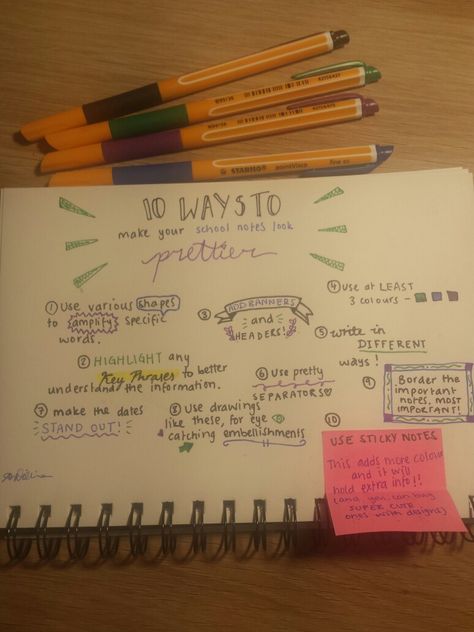 STABILO pointVisco
10 WAYS TO
make your school notes look
prettier
① Use various shapes
to amplify specific
words.
② HIGHLIGHT any
Key Phrases to better
understand the information.
③ ADD BANNERS
and
HEADERS!
④ Use at LEAST
3 colours -
⑤ write in
DIFFERENT
ways!
⑥ Use pretty
SEPARATORS♡
⑦ make the dates
STAND OUT!
⑧ Use drawings
like these, for eye
catching embellishments
⑨ Border the
important
notes, most
IMPORTANT!
⑩
USE STICKY NOTES
This adds more colour
and it will
hold extra info!!
(and you can buy
SUPER CUTE
ones with designs)